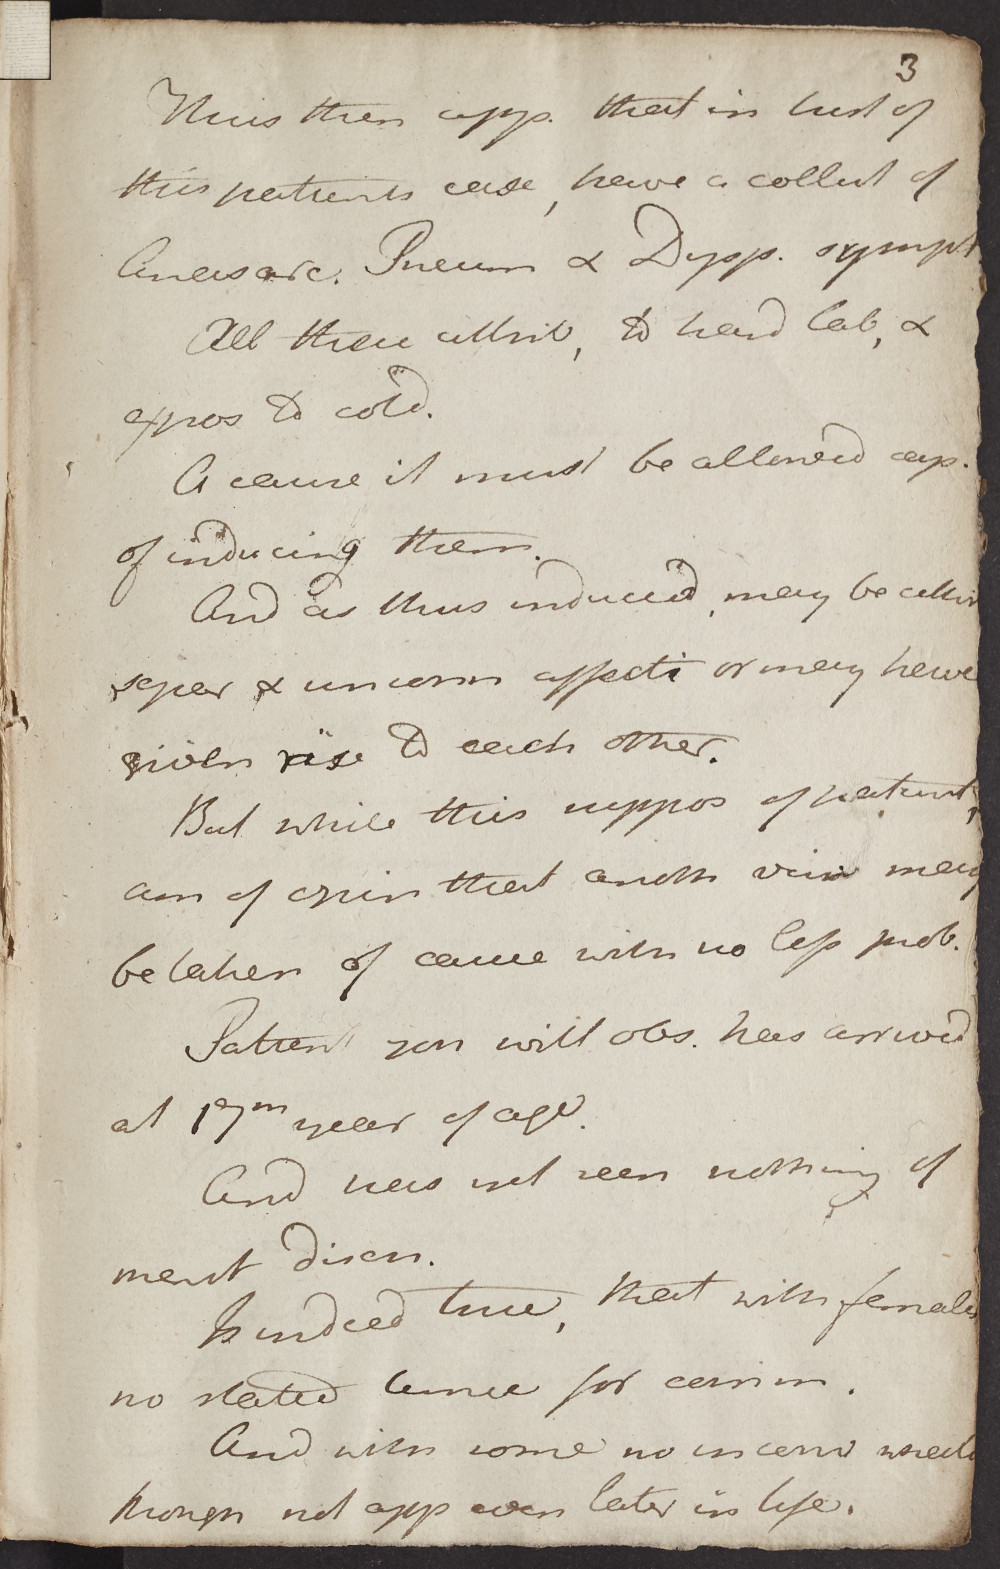 3
Thus then app. that in hist of
this patients case, have a collect of
Anasarc. Pneum & Dysp. sympt
All these attrib, to hard lab, &
expos to cold.
A cause it must be allowed cap.
of inducing them.
And as thus induced, may be either
separ & unconn affecti or may have
given rise to each other.
But while this suppos of patient,
am of opin that anoth view may
be taken of cause with no less prob.
Patient you will obs. has arrived
at 17th year of age.
And has yet seen nothing of
menst discn.
Is indeed true, that with females
no stated time for
And with some no inconv
though not app even later in life.